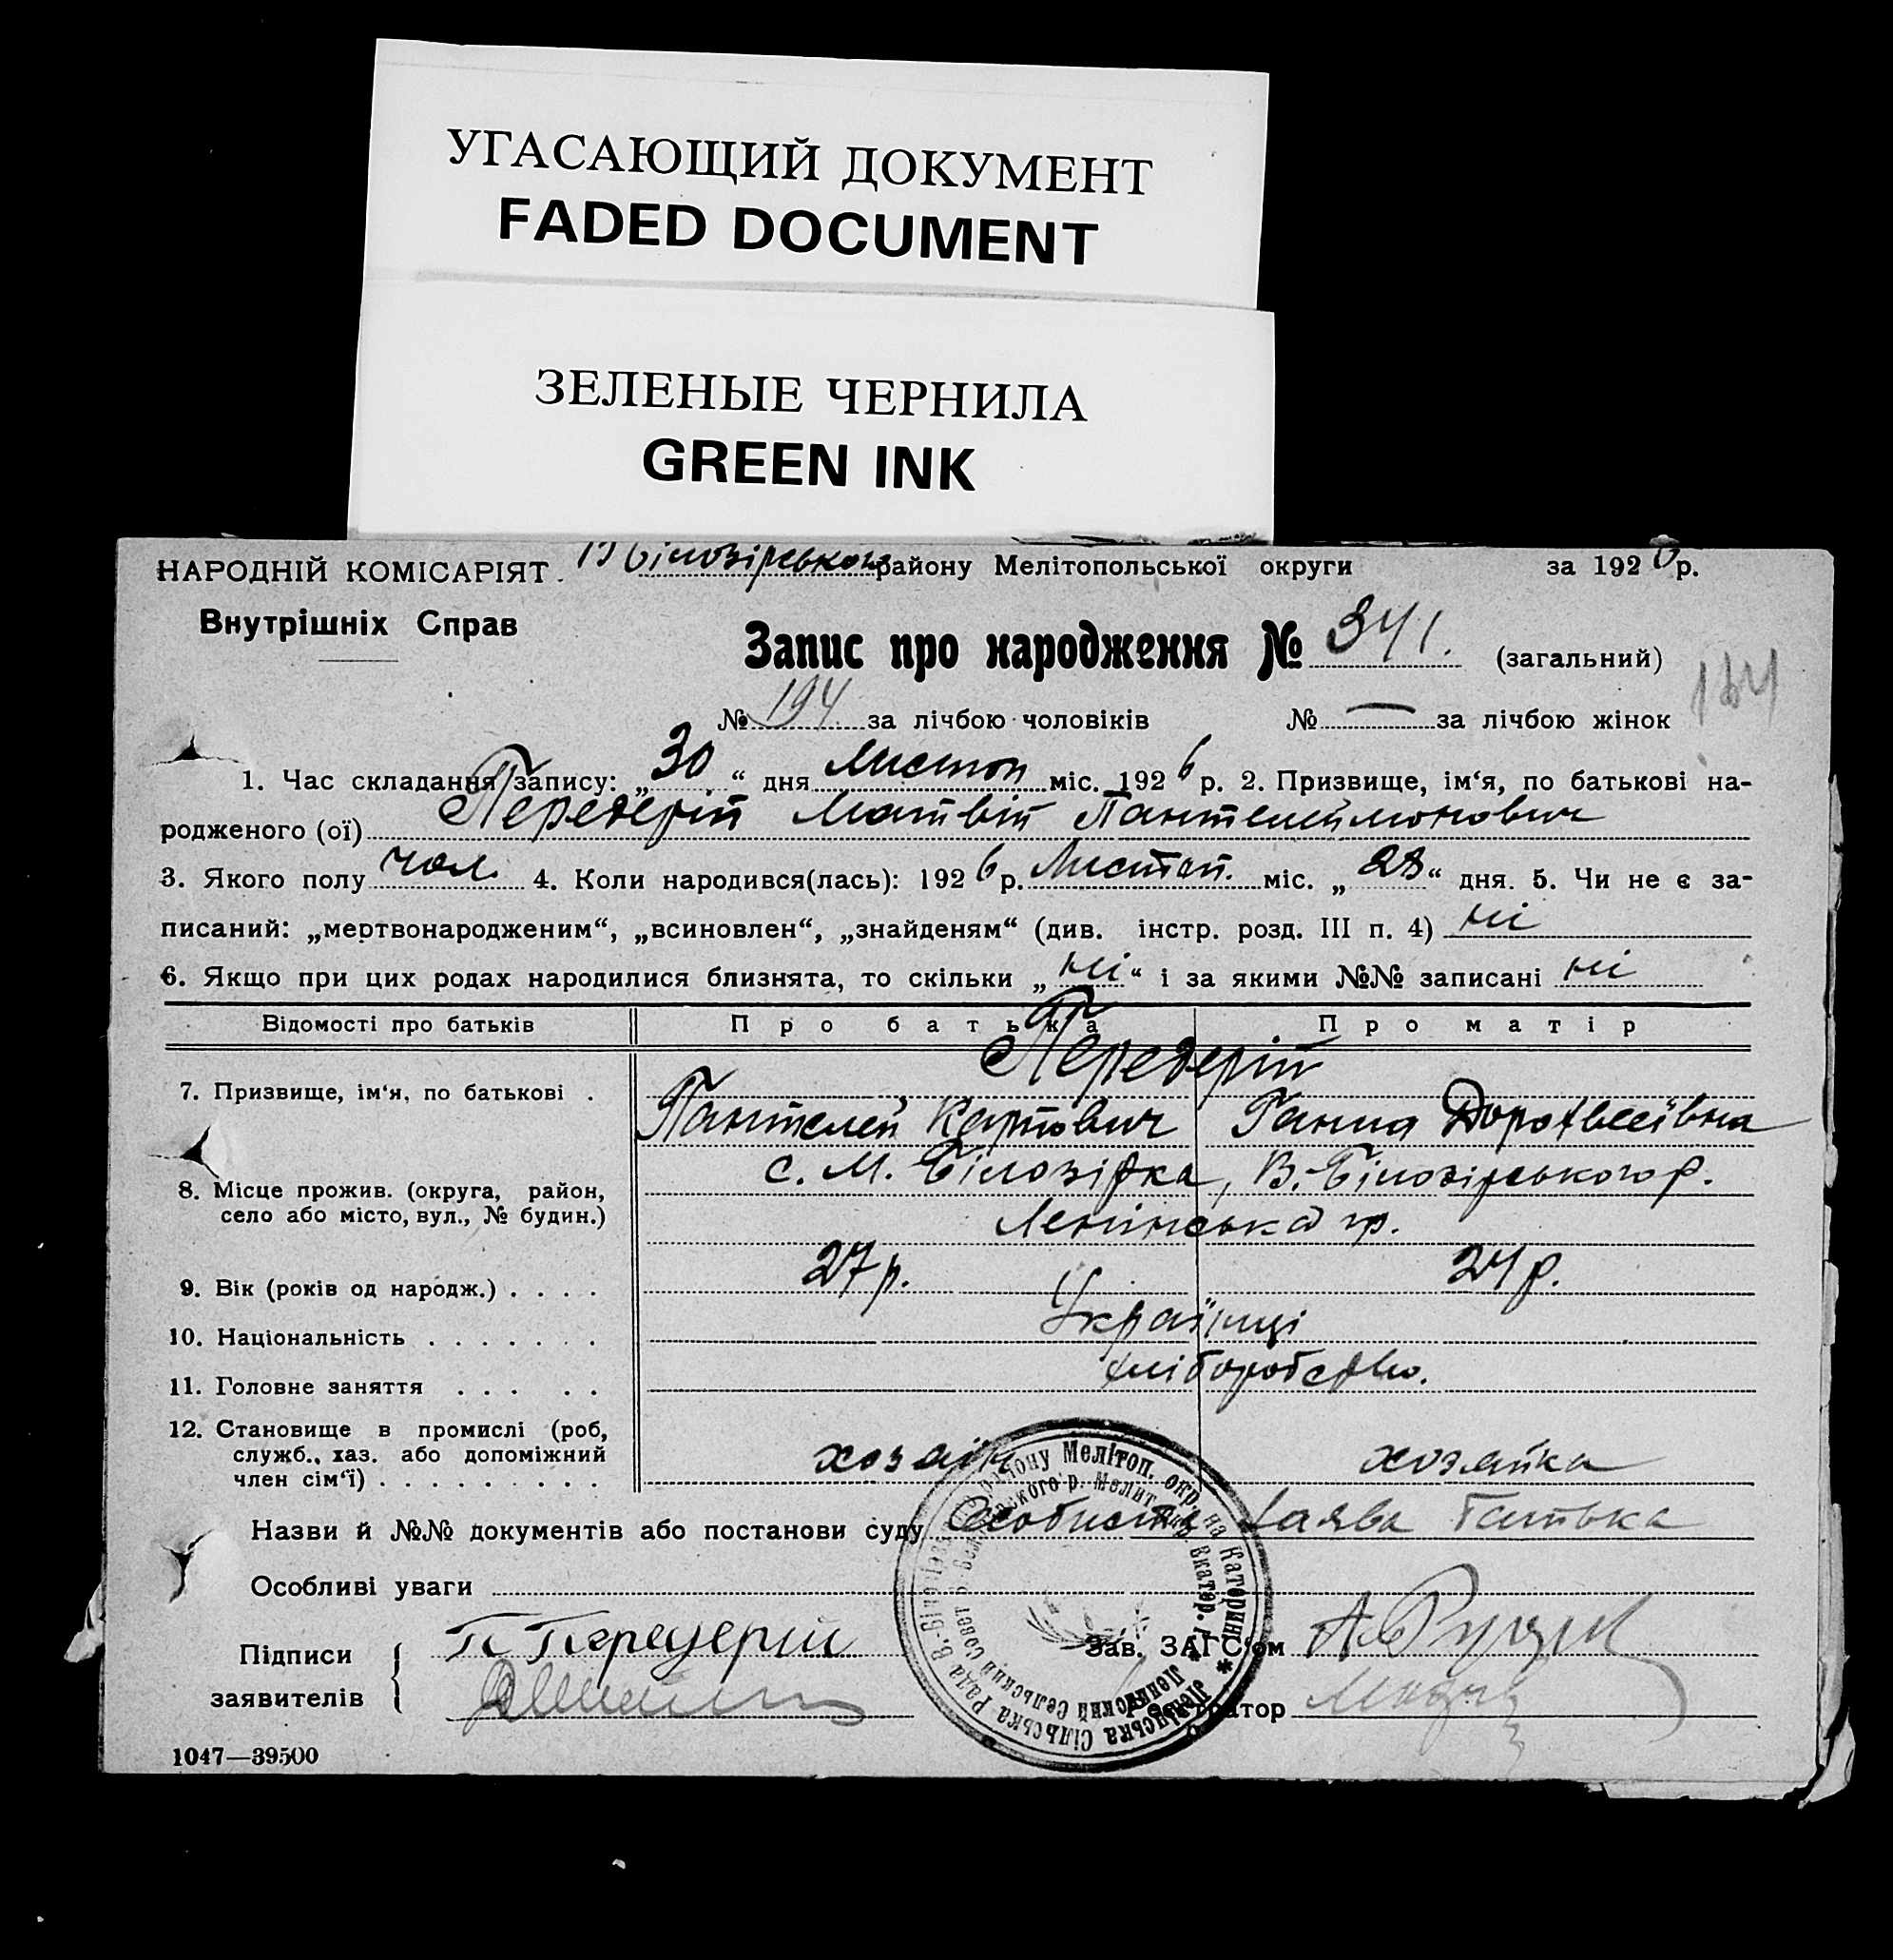 УГАСАЮЩИЙ ДОКУМЕНТ
FADED DOCUMENT
ЗЕЛЕНЫЕ ЧЕРНИЛА
GREEN INK
НАРОДНІЙ КОМІСАРІЯТ. В Білозірського району Мелітопольської округи за 1926 р.
Внутрішніх Справ
Запис про народження № 341. (загальний)
134
№ 194 за лічбою чоловіків № — за лічбою жінок
1. Час складання запису: „30“ дня Листоп міс. 1926 р. 2. Призвище, ім‘я, по батькові на-
родженого (ої) Передерій Матвій Пантелеймонович
3. Якого полу чол. 4. Коли народився(лась): 1926 р. Листоп. міс. „28“ дня. 5. Чи не є за-
писаний: „мертвонародженим“, „всиновлен“, „знайденям“ (див. інстр. розд. III п. 4) ні
6. Якщо при цих родах народилися близнята, то скільки „ні“ і за якими №№ записані ні
Відомості про батьків Про батька Про матір
Передерій
7. Призвище, ім‘я, по батькові . Пантелей Карпович Ганна Дорофеєївна
с. М. Білозірка, В.-Білозірського р.
8. Місце прожив. (округа, район,
село або місто, вул., № будин.) Ленінська гр.
9. Вік (років од народж.) . . . . 27 р. 24 р.
10. Національність . . . . . . . Українці
11. Головне заняття . . . . . хліборобство.
12. Становище в промислі (роб,
служб., хаз. або допоміжний
член сім‘ї) . . . . . . . . . хозяїн хозяйка
Назви й №№ документів або постанови суду Особиста заява батька
Особливі уваги
Підписи П Передерій Зав. ЗАГС‘ом
заявителів
Ленінська Сільська Рада В.-Білозірськ. району Мелітоп. окр. на Катеринк
Ленинский Сельский Совет
1047—39500